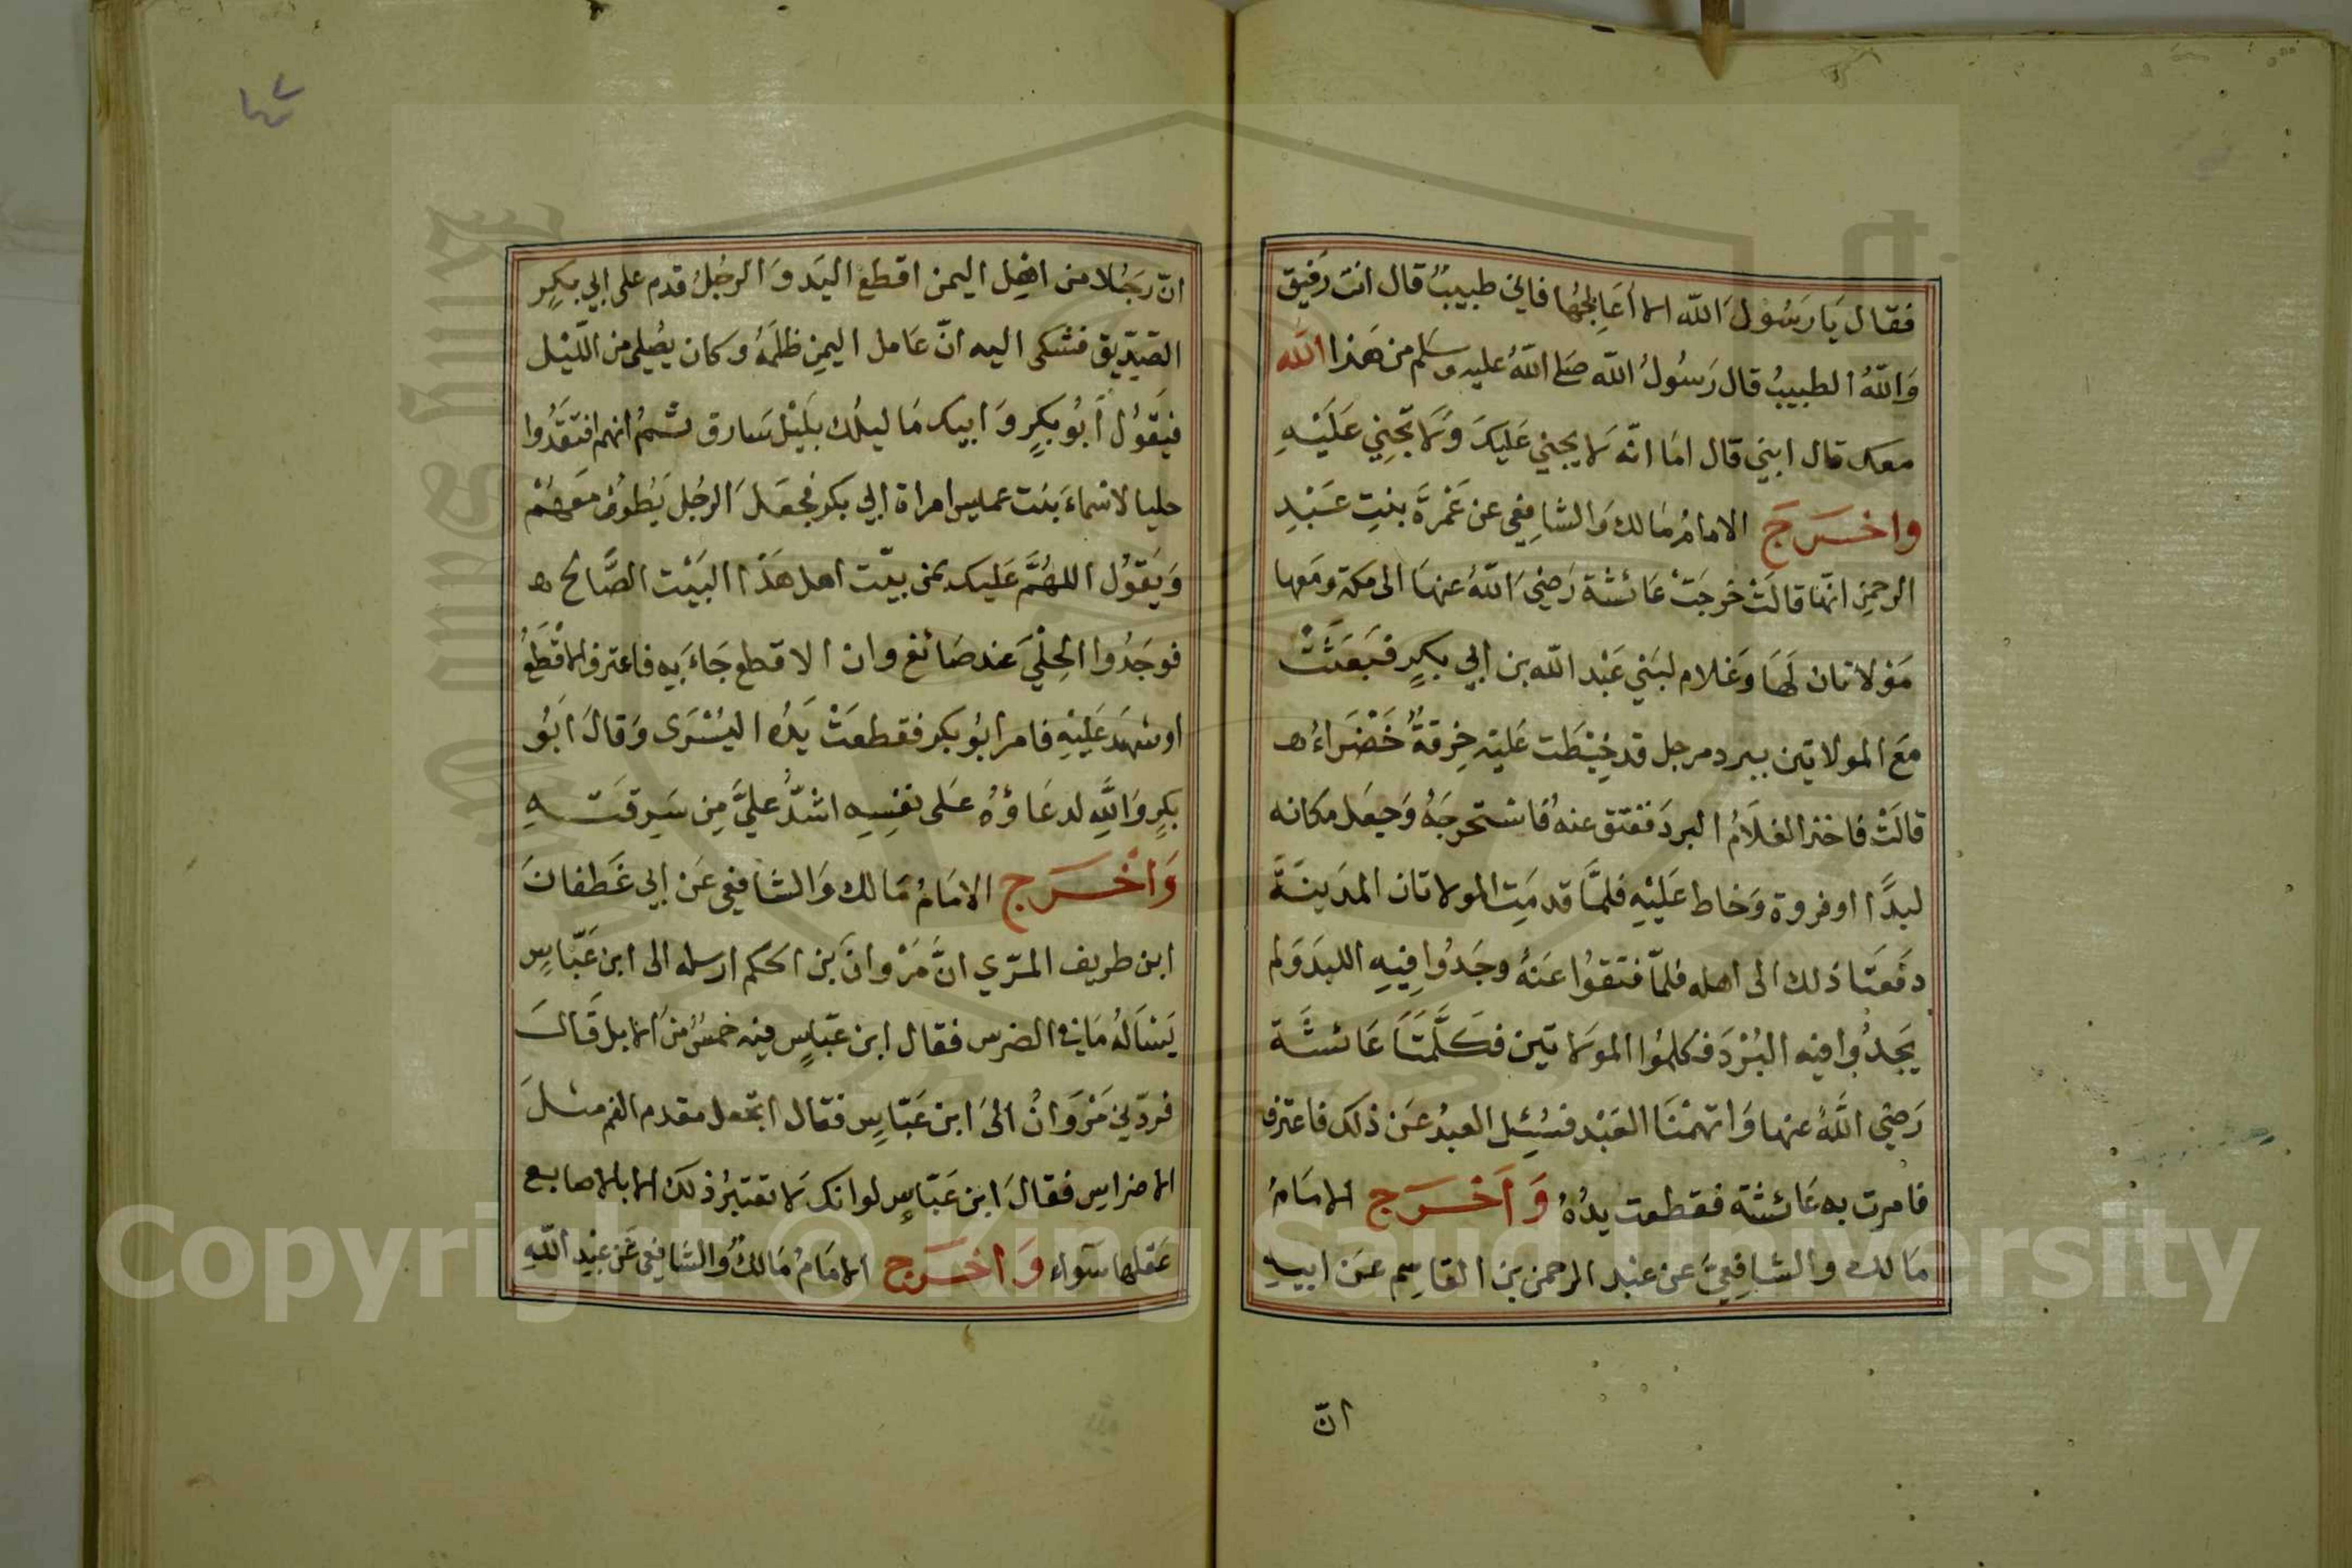 فقال يَا رَسُولَ الله الا أعَالجُهَا فاني طبيبٌ قال انت رَفيق
وَاللهُ الطبيبُ قال رَسُولُ الله صَلى اللهُ عليه وسَلم من هَذا الله
معك قال ابني قال امَا انّه لا يجني عَليكَ وَلا تجْنِي عَلَيْهِ
واخرَجَ الامامُ مَالك وَالشافِعي عن عَمْرَةَ بنتِ عَبْدِ
الرحمنِ انّها قالَتْ خرجَتْ عَائشة رَضيَ اللهُ عنهَا الى مكة ومَعها
مَوْلاتان لهَا وَغلام لبَني عَبْد الله بن ابي بكرٍ فبَعَثَتْ
مَعَ المولاتين ببرد مرجل قد خِيْطَت عَليْه خِرقةٌ خَضْرَاءُ ه
قالَتْ فاخذ الغلَامُ البردَ ففتق عنهُ فاستخرجَهُ وَجعَل مكانه
لبدًا او فروة وَخاط عَليْهِ فلمَّا قدمَتِ المولاتان المدَينَةَ
دفَعَتَا ذلك الى اهله فلمّا فتقوُا عَنهُ وجَدُوا فِيْهِ اللبدَ وَلم
يَجدُوا فيه البُرْدَ فكلموُا المولاتين فكَلَّمَتَا عَائشَةَ
رَضيَ اللهُ عنها وَاتهمْنَا العَبْد فسُئِل العبدُ عَن ذلك فاعترف
فامرت به عَائشة فقطعت يدُهُ وَاخرَج الامَامُ
مَالك والشافِعيُّ عن عَبْد الرحمن بن القاسِم عَن ابيهِ
انّ
٤٢
انّ رَجُلا من اهِل اليمن اقطع اليَد وَالرجُلُ قدم على ابي بكرٍ
الصّديق فشكى اليه انّ عَامل اليمنِ ظلمَهُ وكان يصُلي من اللّيْل
فيَقوُل أبُو بكرٍ وَابيك مَا ليلك بلَيْل سَارق ثمُ انهم افتقدُوا
حليا لاسماءَ بنت عميس امراة ابي بكر فجعَلَ الرجُل يَطوُف معَهُمْ
وَيَقوُل اللهُمَّ عَليك بمن بيّت اهل هَذا البَيْت الصَّالح ه
فوجَدُوا الحِلْيَ عند صَائغ وان الاقطع جَاءَ بِهِ فاعترف الاقْطَعُ
اوشهدَ عَليْهِ فامر ابُو بكر فقطعَتْ يَدُه اليُسْرَى وَقالَ ابَوُ
بكرٍ وَاللهِ لدعَاؤهُ عَلى نفسِهِ اشدُّ عليَّ مِن سَرِقتهِ
وَاخرَج الامَامُ مَالك وَالشافعي عَن ابي غَطفانَ
ابن طريف المرّي انَّ مَرْوانَ بن الحكم ارسله الى ابن عَبّاسٍ
يَسْالهُ مَا في الضرس فقال ابن عبّاسٍ فيه خمسٌ منَ الابل قَالَ
فردّني مَرْوَانُ الىَ ابن عَبّاسٍ فقال اتجعل مقدم الفم مثلَ
الاضراسِ فقالَ ابن عَبّاسٍ لو انك لا تعتبرُ ذلكَ الا بالاصابع
عَقلها سَوَاء وَاخرَج الامَامُ مَالكٌ وَالشافعي عَن عَبْد اللهِ
Copyright © King Saud University